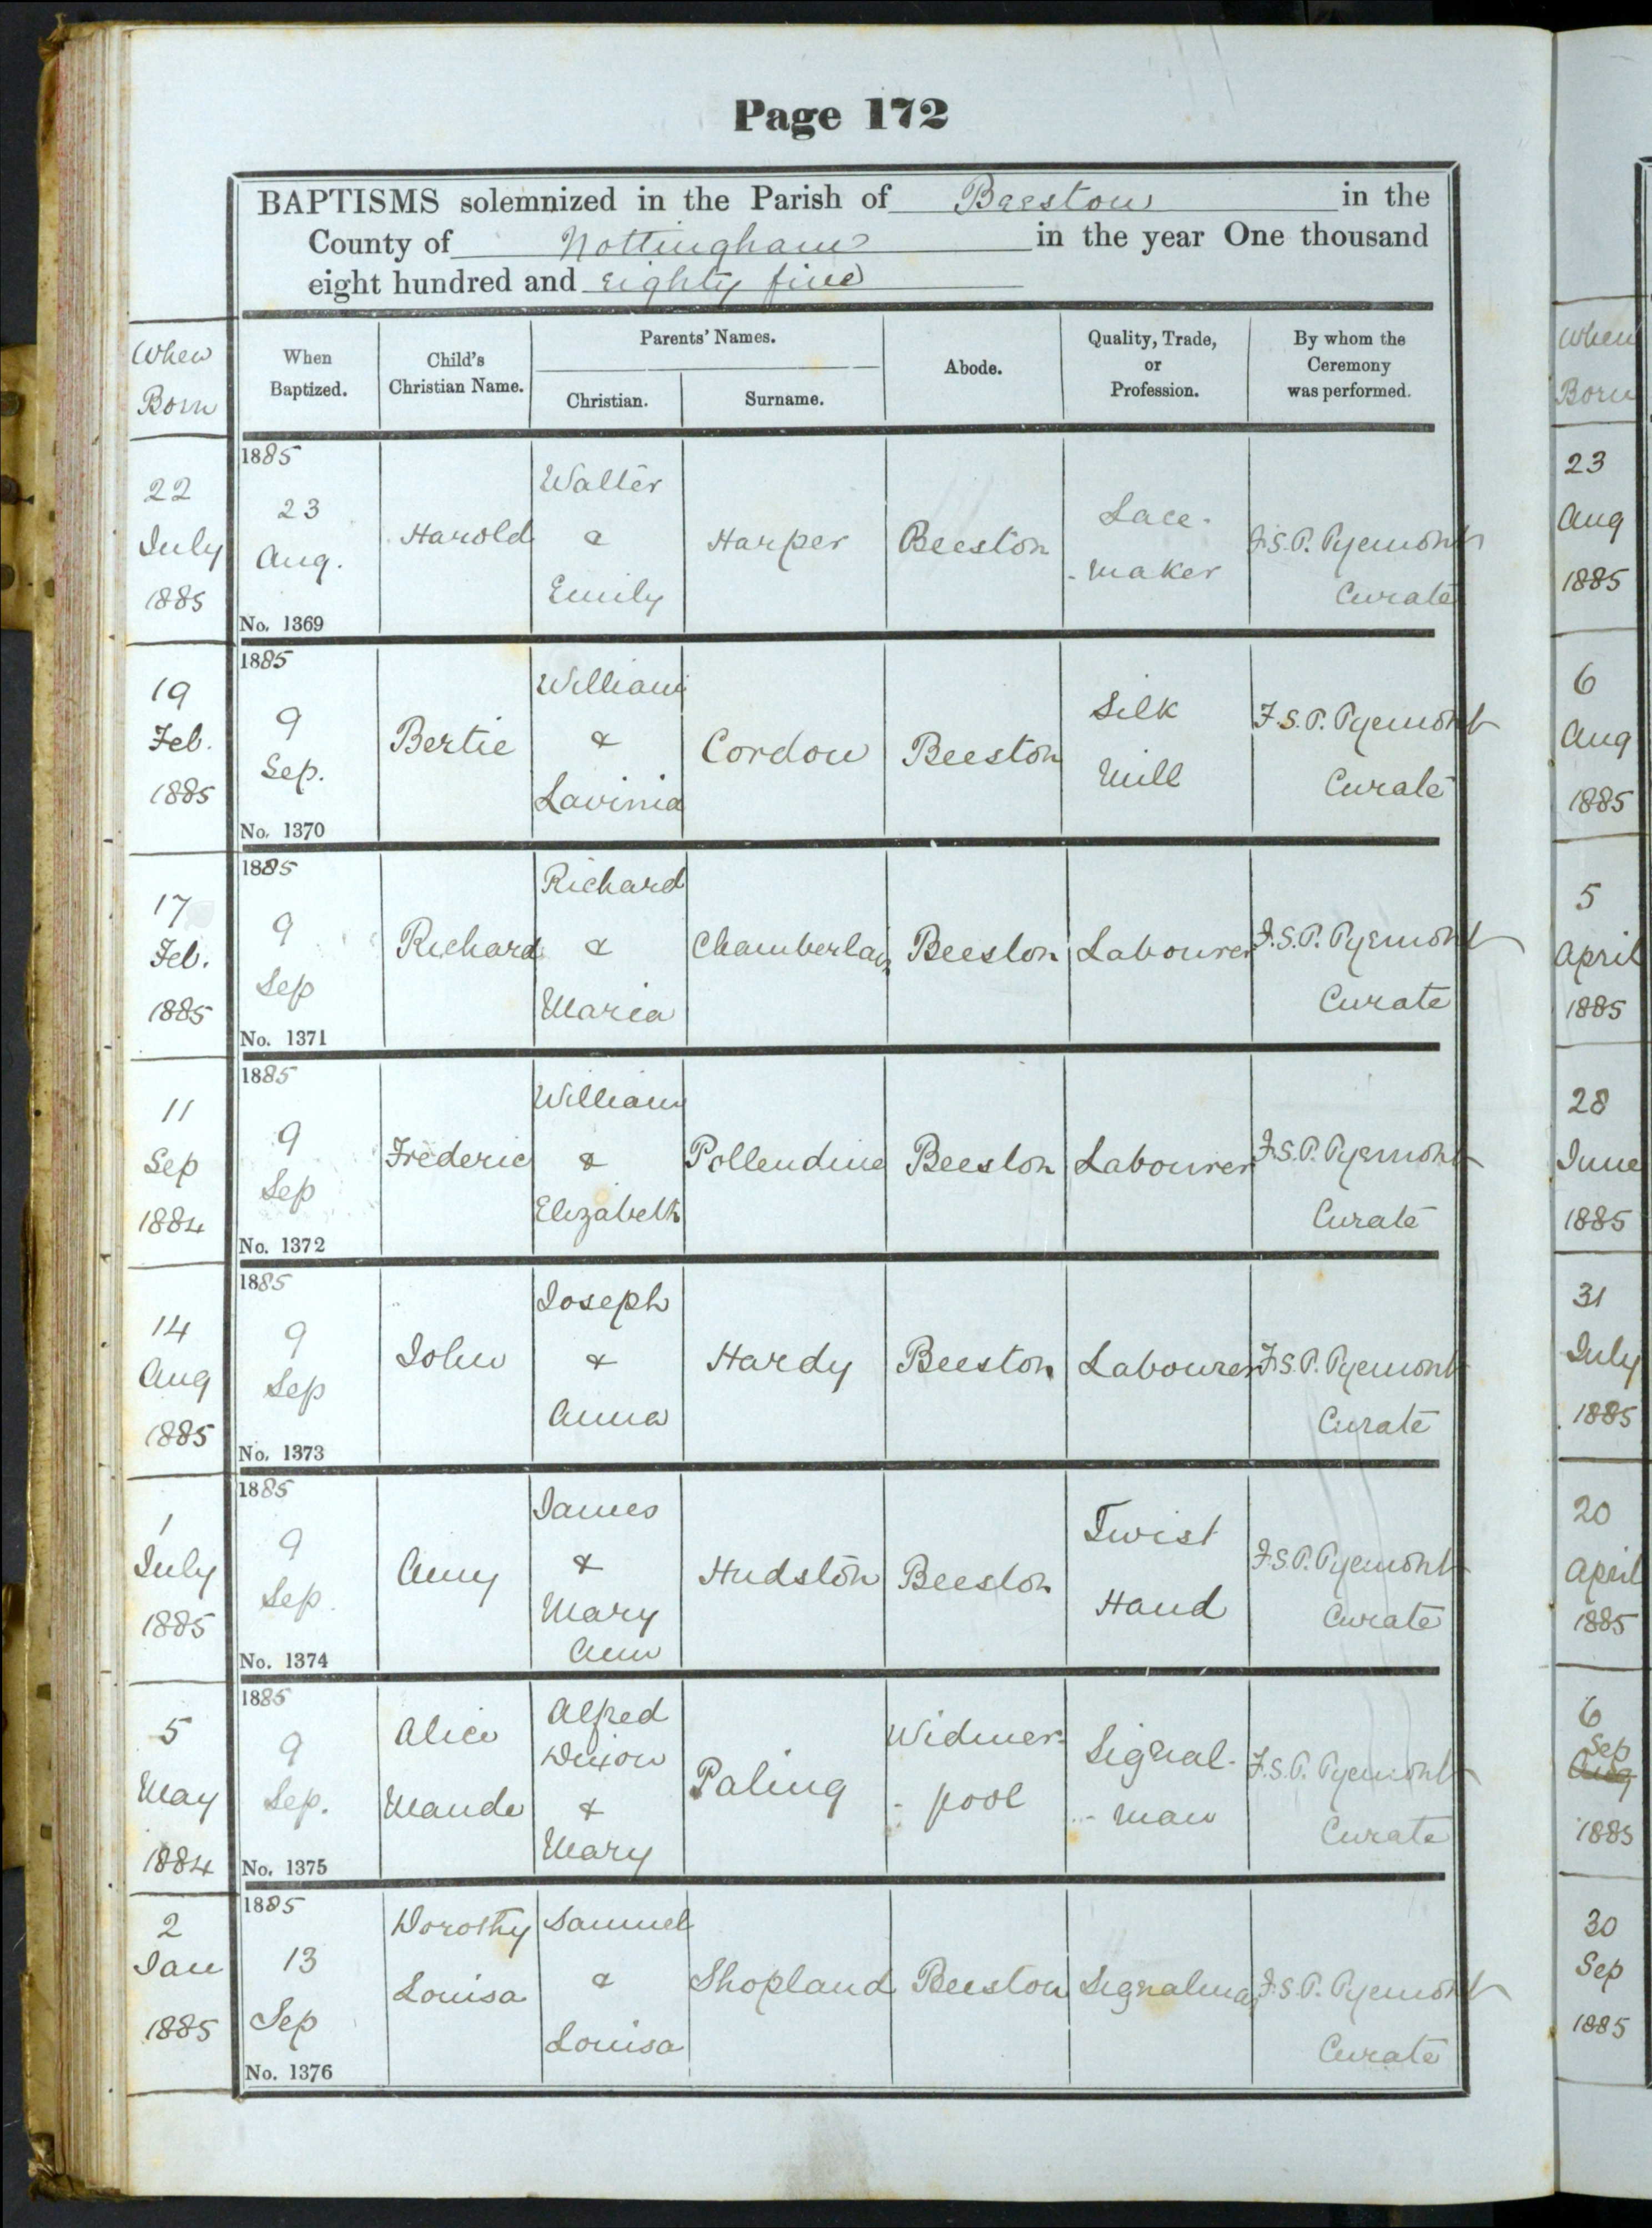 Page 172
BAPTISMS solemnized in the Parish of Beeston in the
County of Nottingham in the year One thousand
eight hundred and eighty five
When Born
When Baptized.
Child's Christian Name.
Parents' Names.
Christian.
Surname.
Abode.
Quality, Trade, or Profession.
By whom the Ceremony was performed.
22 July 1885
1885 23 Aug.
No. 1369
Harold
Walter & Emily
Harper
Beeston
Lace-
-maker
F.S.P. Pyemont
Curate
19 Feb. 1885
1885 9 Sep.
No. 1370
Bertie
William & Lavinia
Cordon
Beeston
Silk
Mill
F.S.P. Pyemont
Curate
17 Feb. 1885
1885 9 Sep
No. 1371
Richard
Richard & Maria
Chamberlain
Beeston
Labourer
F.S.P. Pyemont
Curate
11 Sep 1884
1885 9 Sep
No. 1372
Frederic
William & Elizabeth
Pollendine
Beeston
Labourer
F.S.P. Pyemont
Curate
14 Aug 1885
1885 9 Sep
No. 1373
John
Joseph & Anna
Hardy
Beeston
Labourer
F.S.P. Pyemont
Curate
1 July 1885
1885 9 Sep.
No. 1374
Amy
James & Mary Ann
Hudston
Beeston
Twist
Hand
F.S.P. Pyemont
Curate
5 May 1884
1885 9 Sep.
No. 1375
Alice
Maude
Alfred Dixon & Mary
Paling
Widmer-
-pool
Signal-
-man
F.S.P. Pyemont
Curate
2 Jan 1885
1885 13 Sep
No. 1376
Dorothy
Louisa
Samuel & Louisa
Shopland
Beeston
Signalman
F.S.P. Pyemont
Curate
When Born
23 Aug 1885
6 Aug 1885
5 April 1885
28 June 1885
31 July 1885
20 April 1885
6 Sep Aug 1885
30 Sep 1885